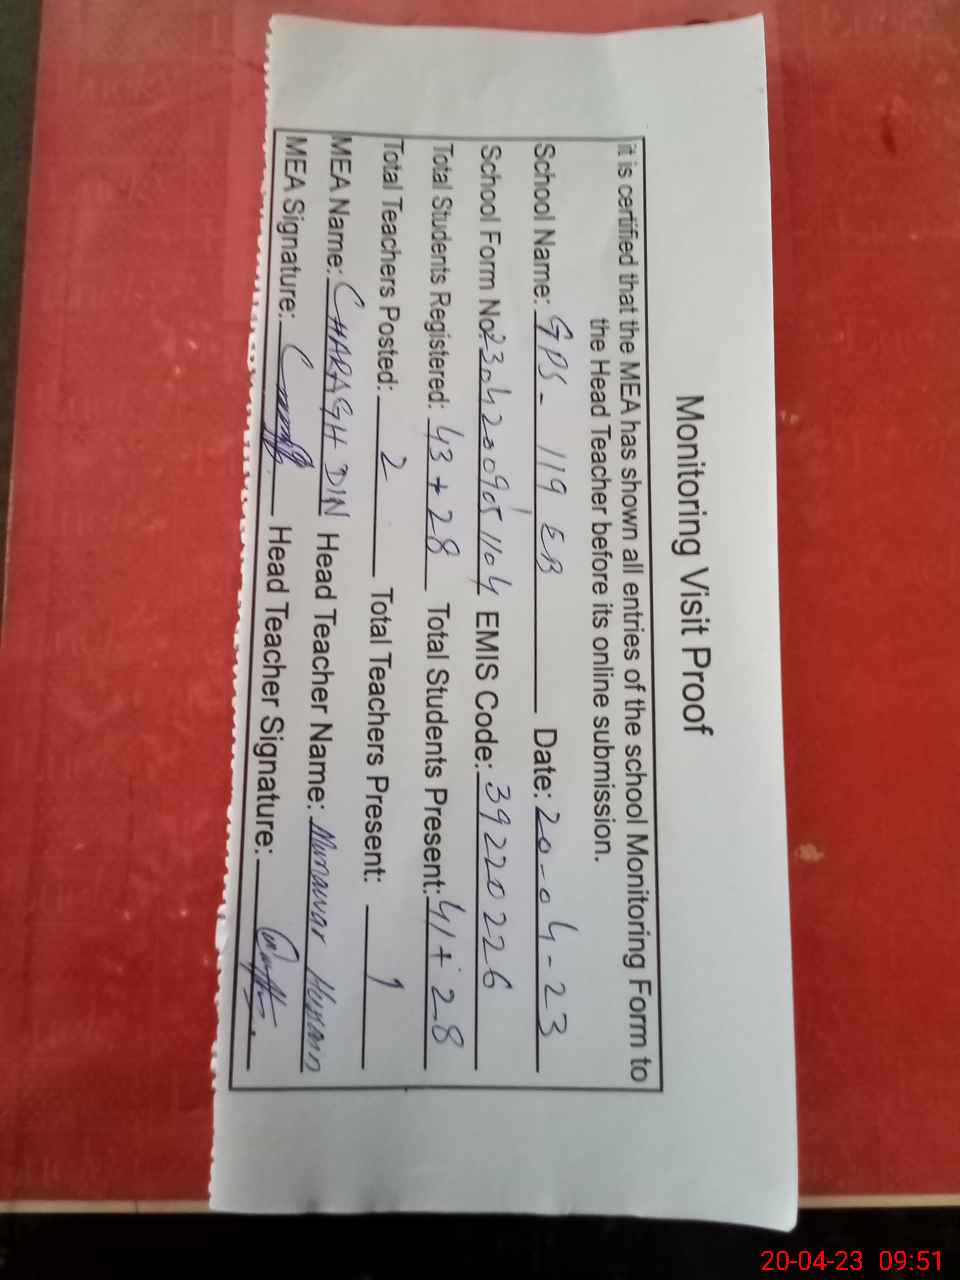 Monitoring Visit Proof
it is certified that the MEA has shown all entries of the school Monitoring Form to
the Head Teacher before its online submission.
School Name: GPS- 119 EB Date: 20-04-23
School Form No: EMIS Code: 39220226
Total Students Registered: 43 + 28 Total Students Present: 41 + 28
Total Teachers Posted: 2 Total Teachers Present: 1
MEA Name: CHARAGH DIN Head Teacher Name: Munawar Hussain
MEA Signature: Head Teacher Signature:
20-04-23 09:51